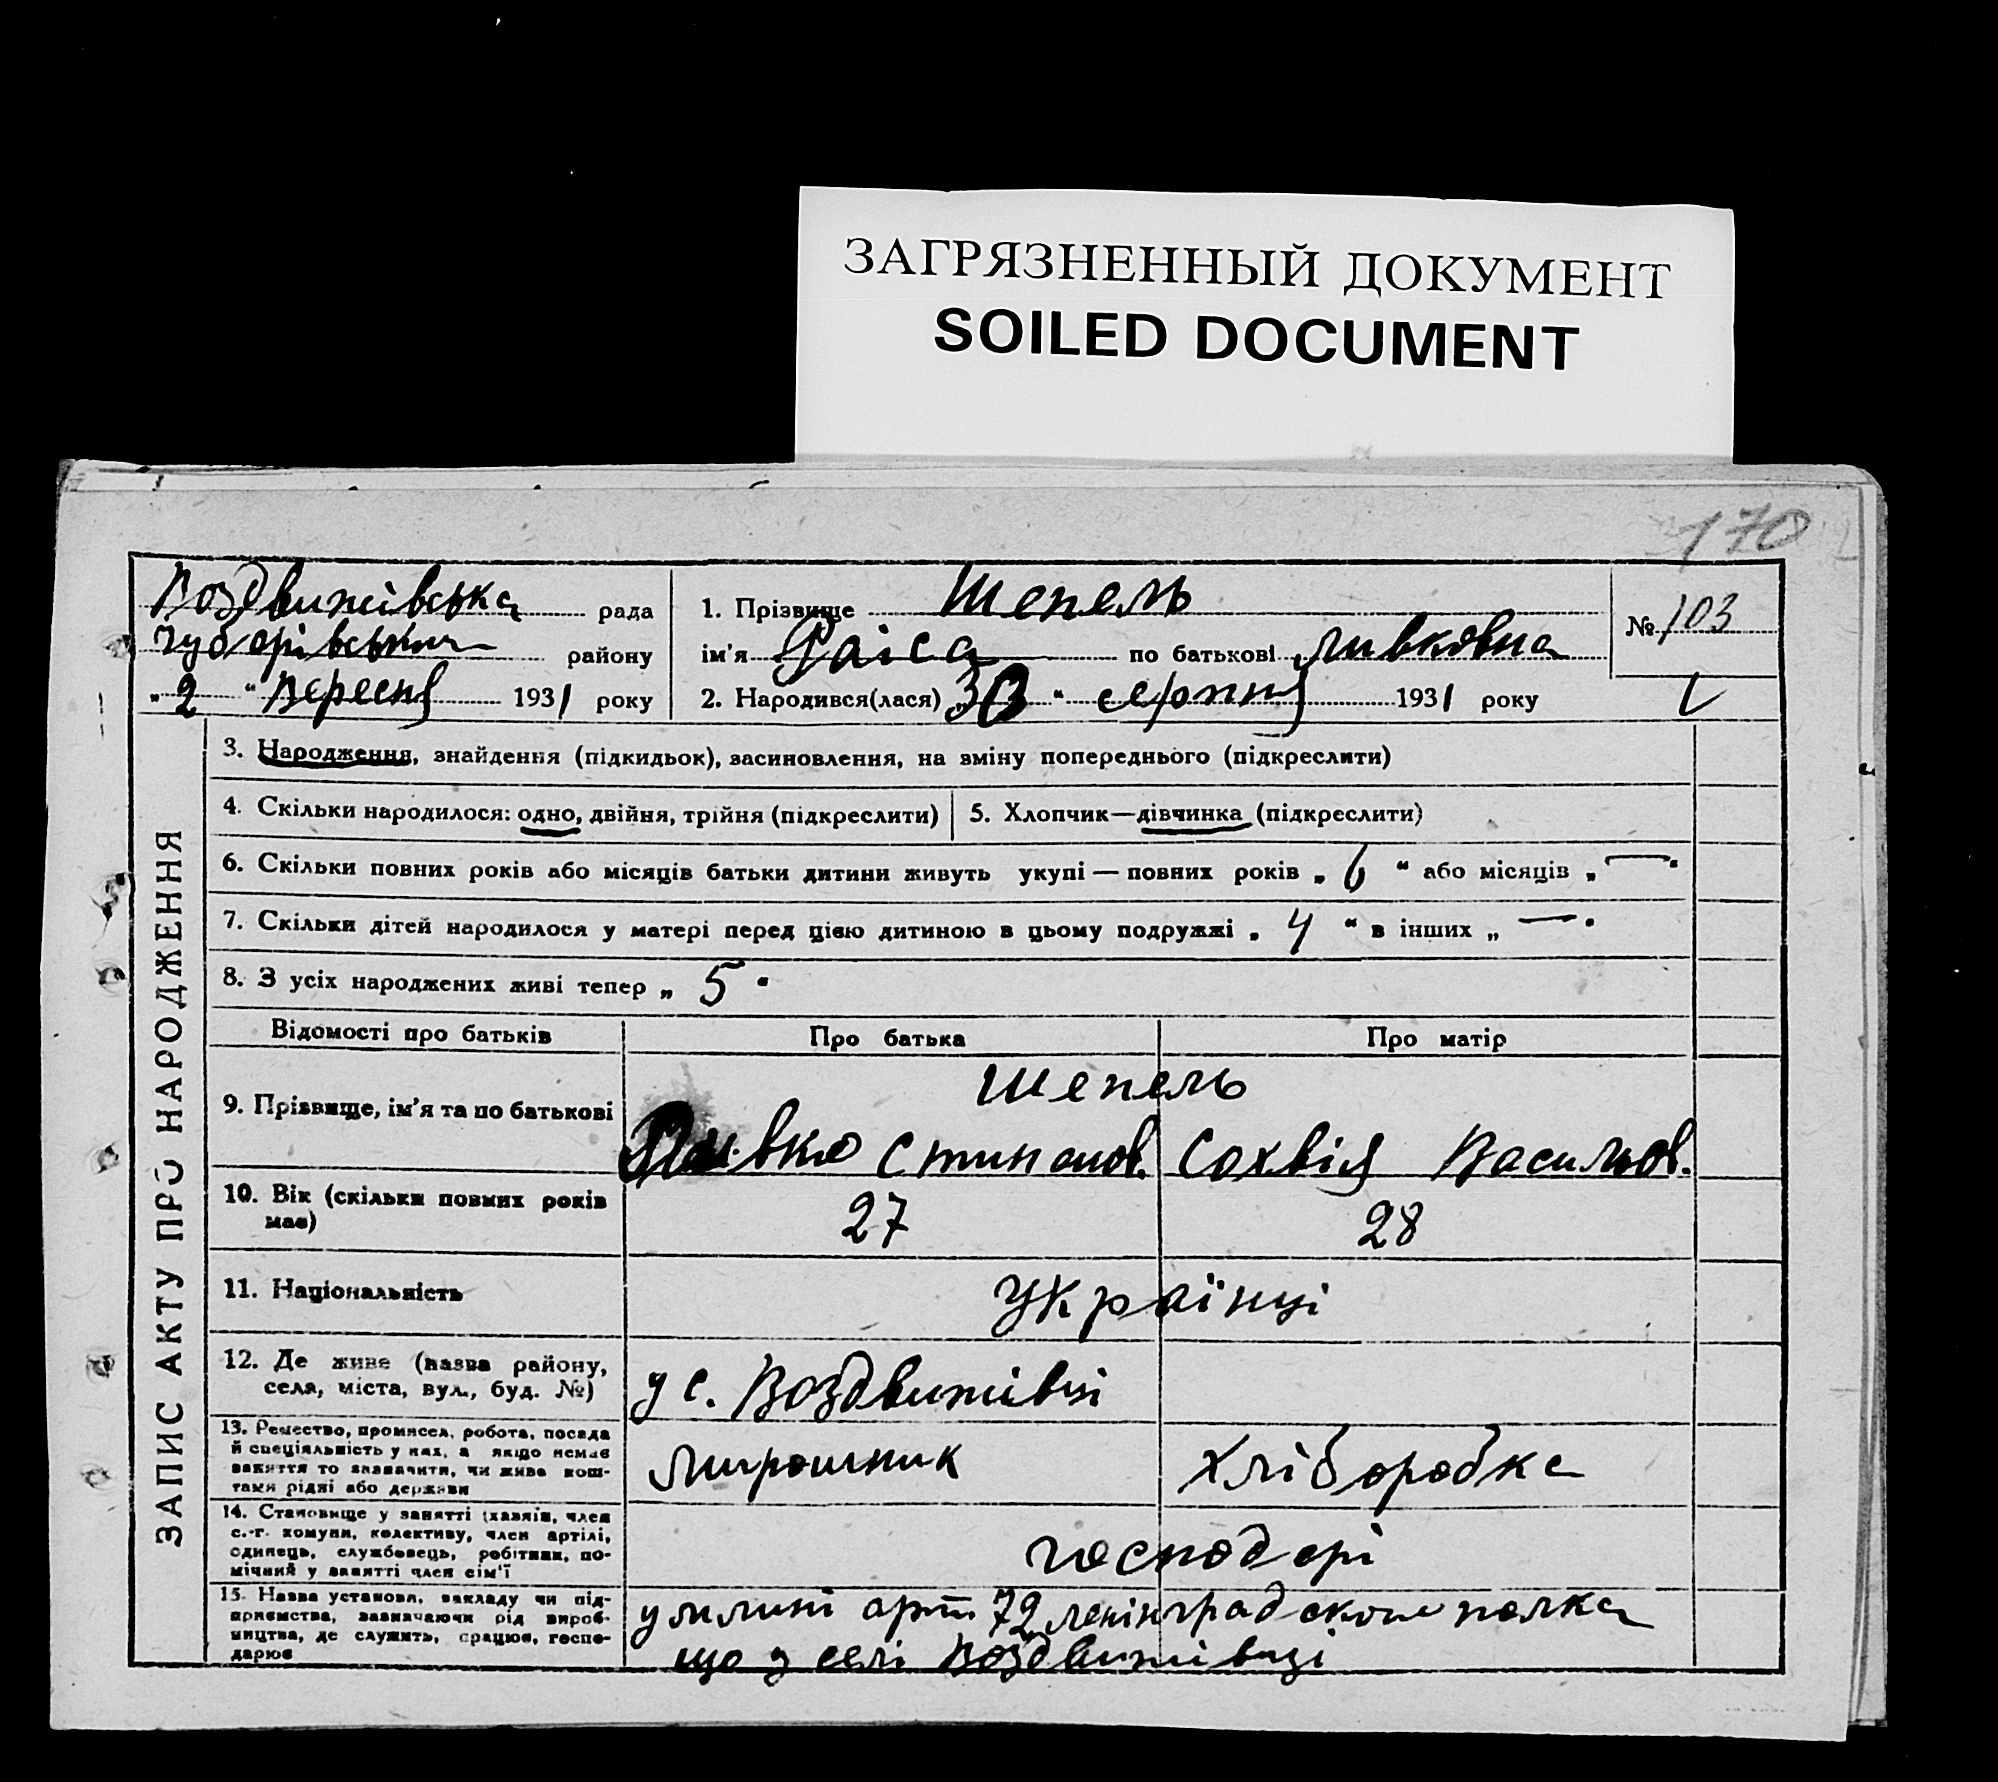 ЗАГРЯЗНЕННЫЙ ДОКУМЕНТ
SOILED DOCUMENT
170
Воздвижівська рада
району
„ 2 “ Вересня 1931 року
1. Прізвище Шепель
ім'я Раіса по батькові Ливковна
2. Народився(лася) „30“ серпня 1931 року
№ 103
ЗАПИС АКТУ ПРО НАРОДЖЕННЯ
3. Народження, знайдення (підкидьок), засиновлення, на зміну попереднього (підкреслити)
4. Скільки народилося: одно, двійня, трійня (підкреслити)
5. Хлопчик—дівчинка (підкреслити)
6. Скільки повних років або місяців батьки дитини живуть укупі — повних років „ 6 “ або місяців „ — “
7. Скільки дітей народилося у матері перед цією дитиною в цьому подружжі „ 4 “ в інших „ — “
8. З усіх народжених живі тепер „ 5 “
Відомості про батьків
Про батька
Про матір
9. Прізвище, ім'я та по батькові
Шепель
Ливко Стипанов. Сохвія Васильов.
10. Вік (скільки повних років
має)
27
28
11. Національність
Українці
12. Де живе (назва району,
села, міста, вул., буд. №)
у с. Воздвижівці
13. Ремество, промисел, робота, посада
й спеціяльність у них, а якщо немає
заняття то зазначити, чи живе кош-
тами рідні або держави
Мирошник
Хліборобка
14. Становище у занятті (хазяїн, член
с.-г. комуни, колективу, член артілі,
одинець, службовець, робітник, по-
мічний у занятті член сім'ї
господарі
15. Назва установи, закладу чи під-
приємства, зазначаючи рід вироб-
ництва, де служить, працює, госпо-
дарює
у млині арт 72 ленінградского полка
що у селі Воздвижівці